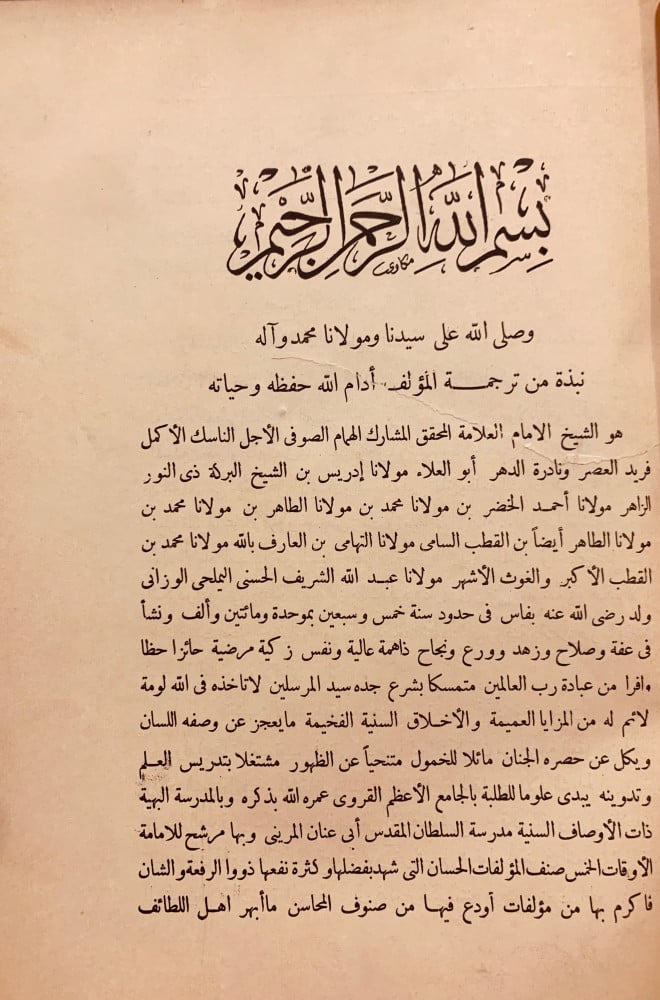 بسم الله الرحمن الرحيم
مكاوى
وصلى الله على سيدنا ومولانا محمد وآله
نبذة من ترجمة المؤلف أدام الله حفظه وحياته
هو الشيخ الامام العلامة المحقق المشارك الهمام الصوفى الأجل الناسك الأكمل
فريد العصر ونادرة الدهر أبو العلاء مولانا إدريس بن الشيخ البركة ذى النور
الزاهر مولانا أحمد الخضر بن مولانا محمد بن مولانا الطاهر بن مولانا محمد بن
مولانا الطاهر أيضاً بن القطب السامى مولانا التهامى بن العارف بالله مولانا محمد بن
القطب الأكبر والغوث الأشهر مولانا عبد الله الشريف الحسنى اليملحى الوزانى
ولد رضى الله عنه بفاس فى حدود سنة خمس وسبعين بموحدة ومائتين وألف ونشأ
فى عفة وصلاح وزهد وورع ونجاح ذاهمة عالية ونفس زكية مرضية حائزا حظا
وافرا من عبادة رب العالمين متمسكا بشرع جده سيد المرسلين لاتاخذه فى الله لومة
لائم له من المزايا العميمة والأخلاق السنية الفخيمة مايعجز عن وصفه اللسان
ويكل عن حصره الجنان مائلا للخمول متنحياً عن الظهور مشتغلا بتدريس العلم
وتدوينه يبدى علوما للطلبة بالجامع الأعظم القروى عمره الله بذكره وبالمدرسة البهية
ذات الأوصاف السنية مدرسة السلطان المقدس أبى عنان المرينى وبها مرشح للامامة
الأوقات الخمس صنف المؤلفات الحسان التى شهد بفضلها وكثرة نفعها ذووا الرفعة والشان
فاكرم بها من مؤلفات أودع فيها من صنوف المحاسن ماأبهر اهل اللطائف